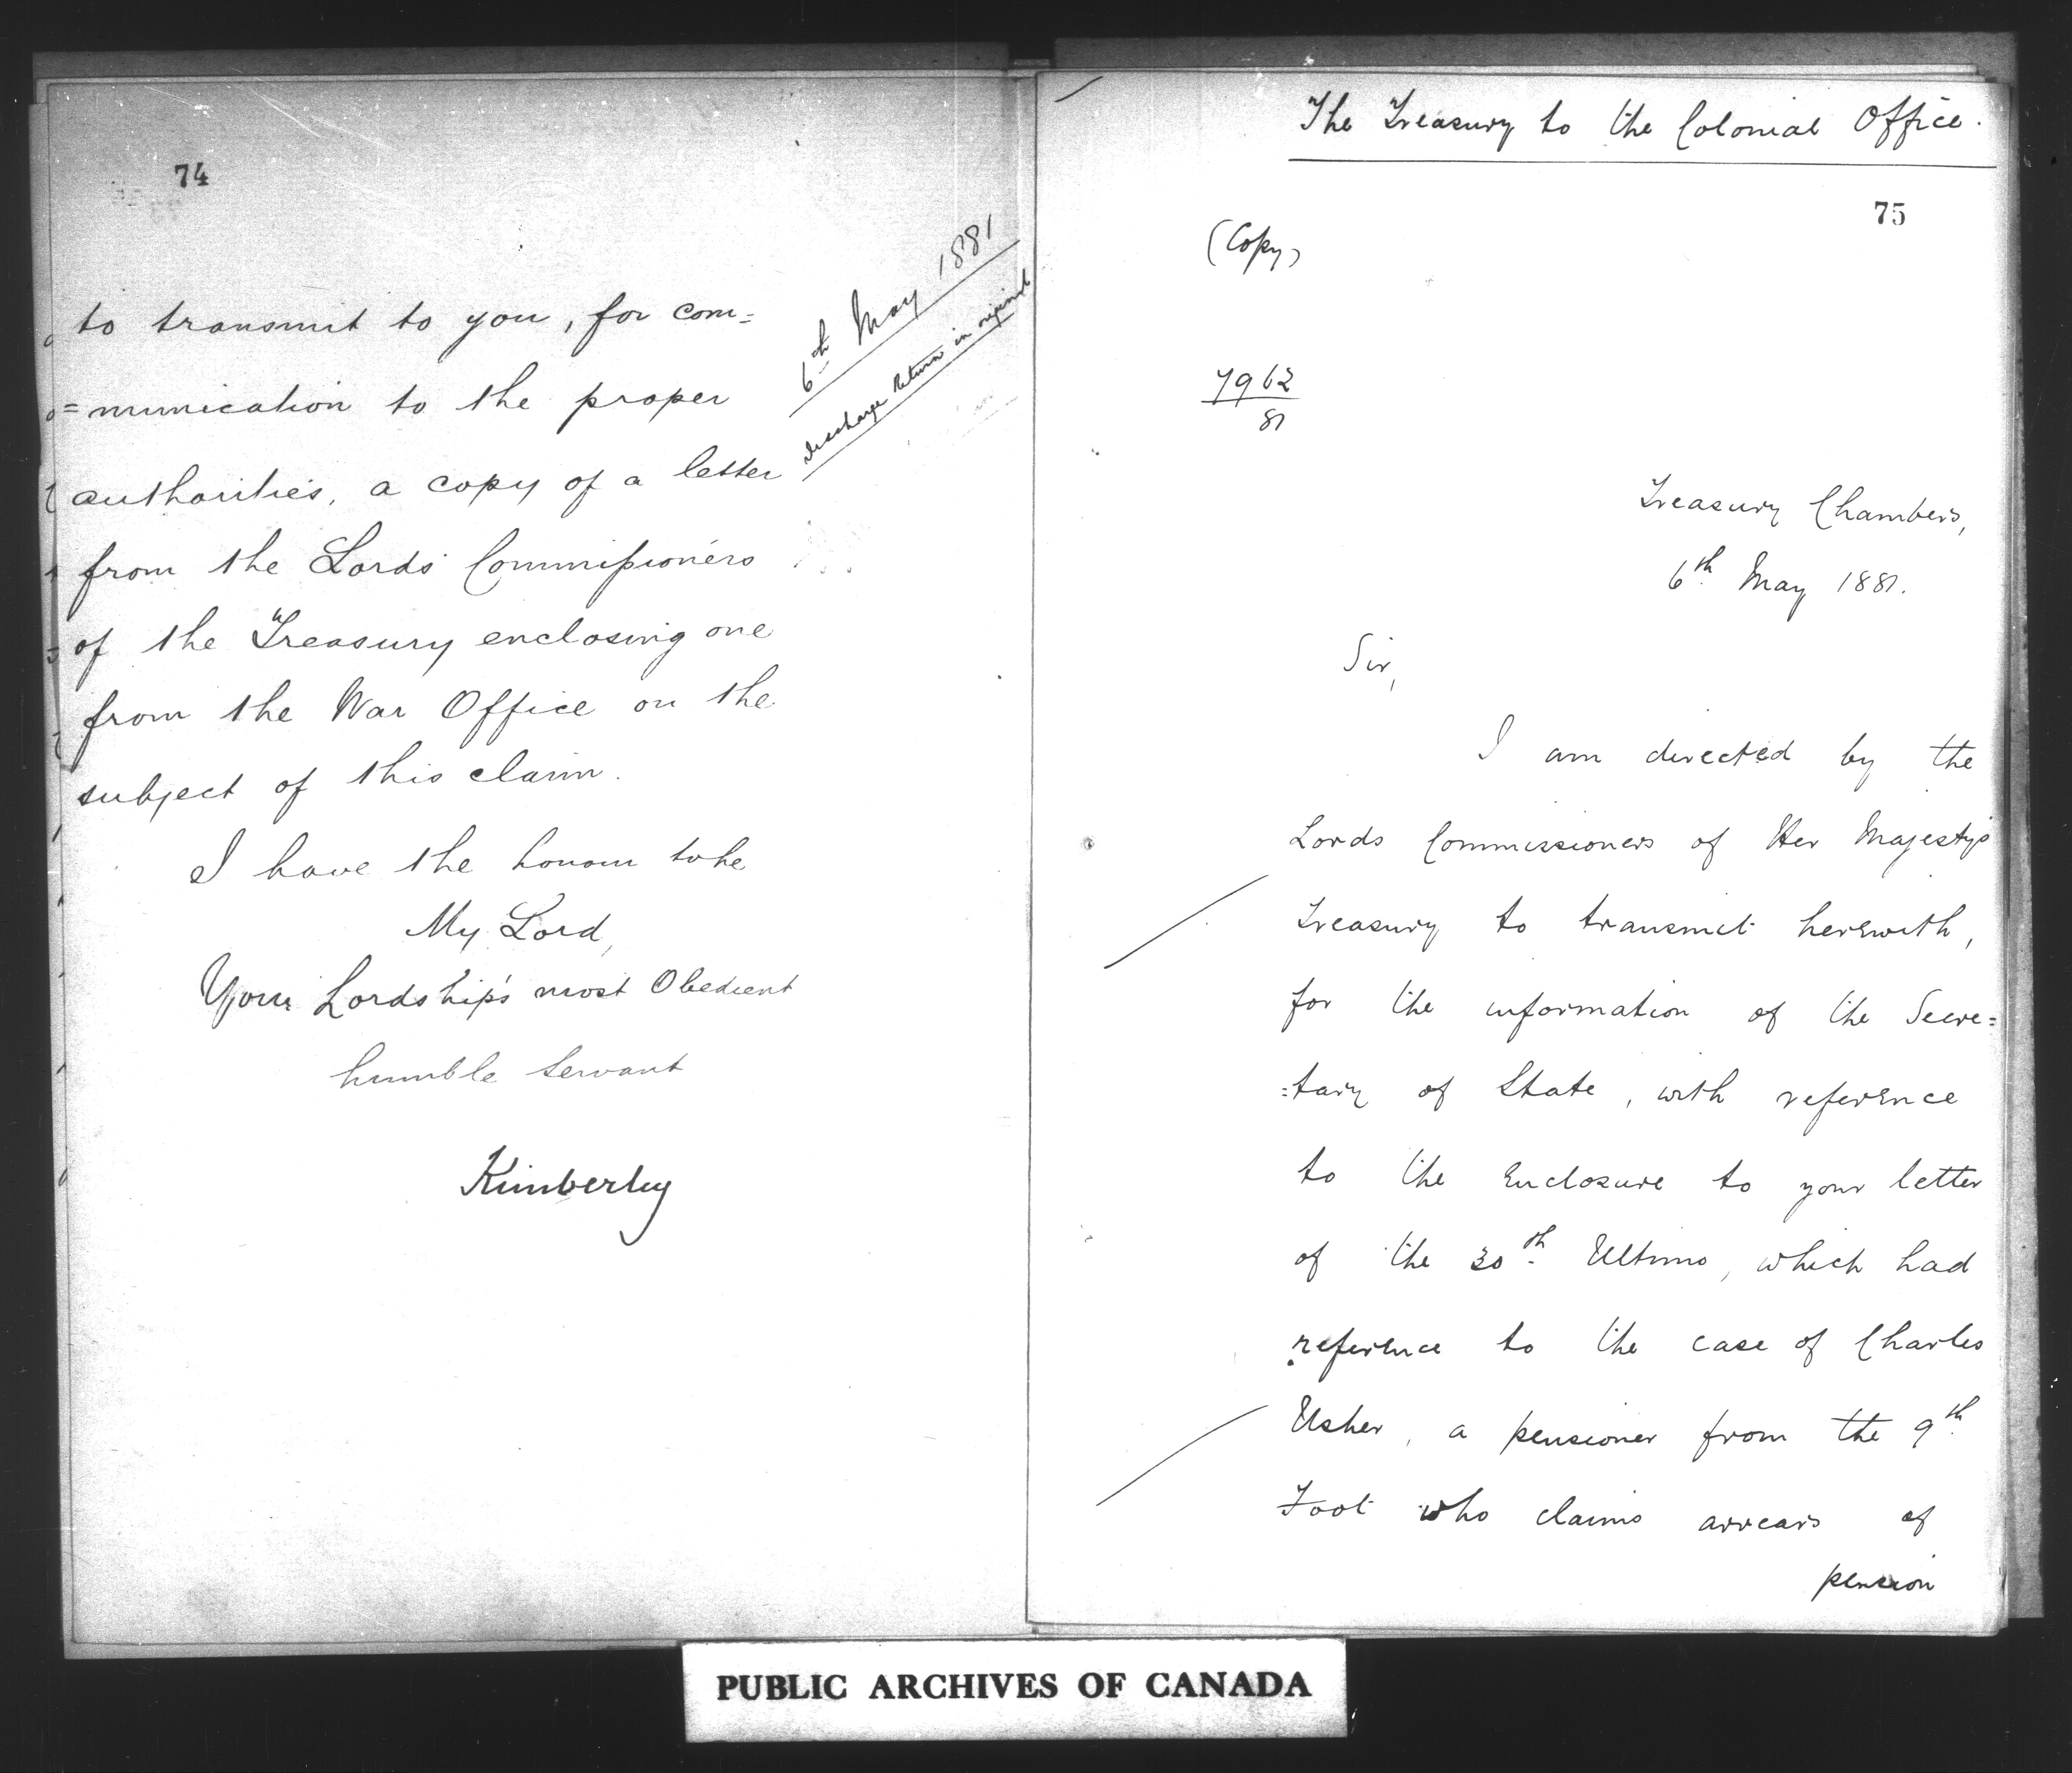 74
to transmit to you, for com=
=munication to the proper
authorities, a copy of a letter
from the Lords Commissioners
of the Treasury enclosing one
from the War Office on the
subject of this claim.
I have the honour to be
My Lord,
Your Lordship's most Obedient
humble Servant
Kimberley
6th May 1881
Discharge Return in original
The Treasury to the Colonial Office.
75
(Copy)
7962
81
Treasury Chambers,
6th May 1881.
Sir,
I am directed by the
Lords Commissioners of Her Majesty's
Treasury to transmit herewith,
for the information of the Secre=
=tary of State, with reference
to the Enclosure to your letter
of the 30th Ultimo, which had
reference to the case of Charles
Usher, a pensioner from the 9th
Foot who claims arrears of
pension
PUBLIC ARCHIVES OF CANADA